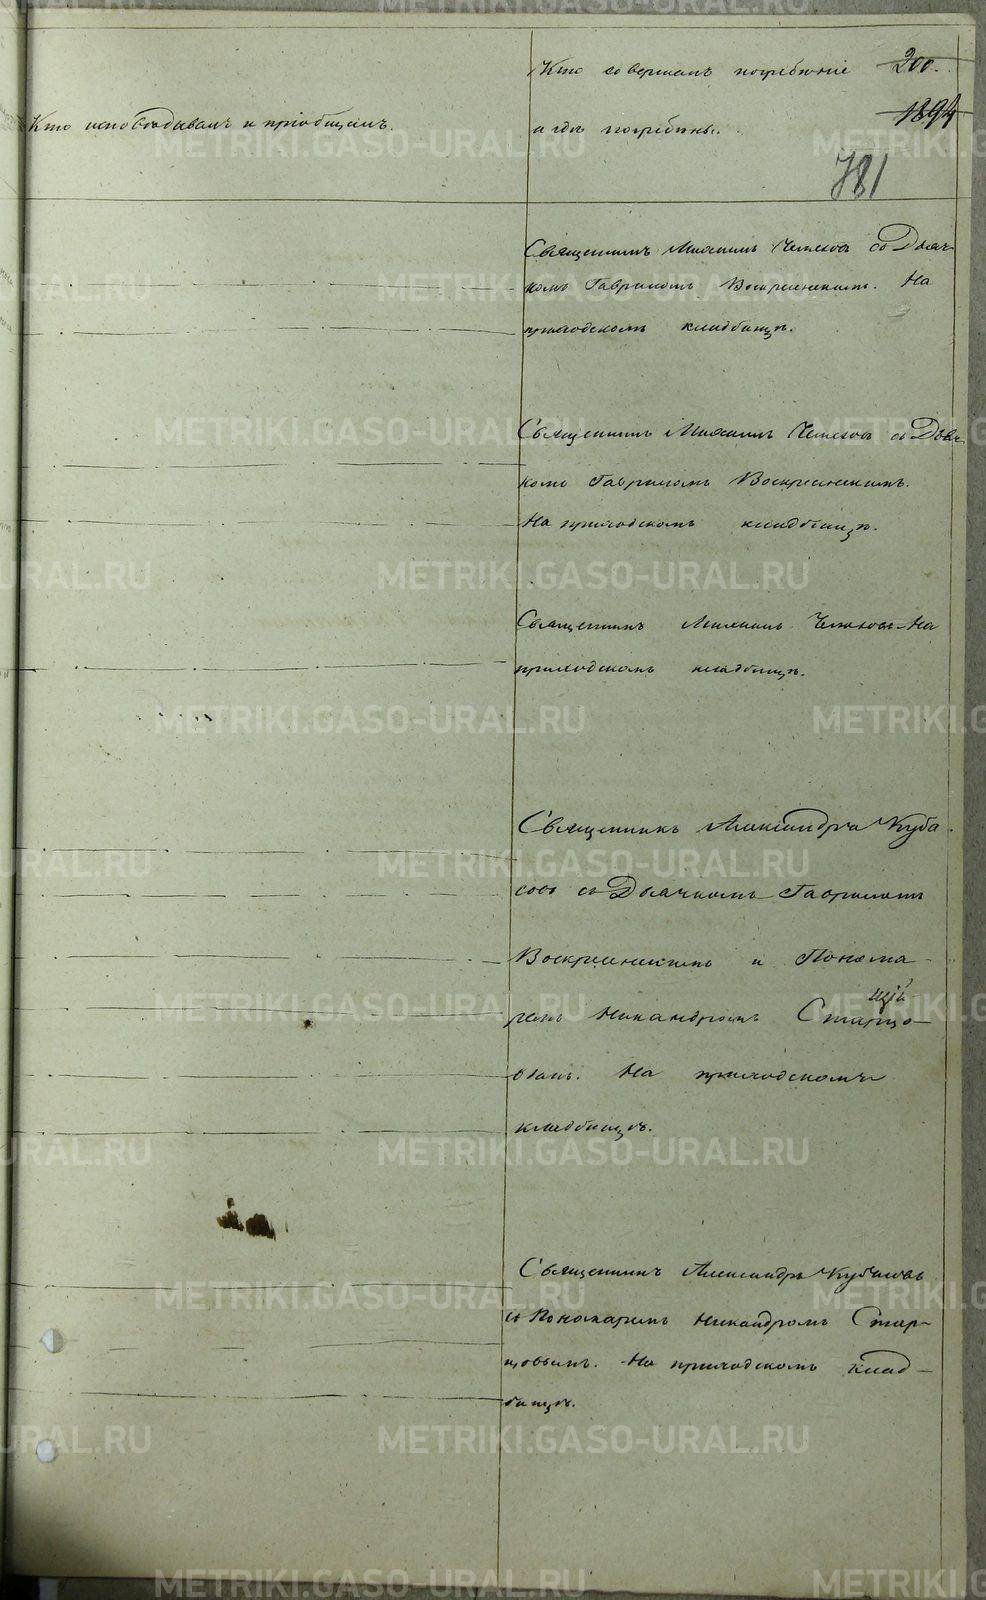 Кто исповѣдывалъ и пріобщалъ.
Кто совершалъ погребеніе
и гдѣ погребены.
200.
1894
781
Священникъ Михаилъ со Дьяч-
комъ Гавриломъ Воскресенскимъ. На
приходскомъ кладбищѣ.
Священникъ Михаилъ съ Дьяч-
комъ Гавриломъ Воскресенскимъ.
На приходскомъ кладбищѣ.
Священникъ Михаилъ На
приходскомъ кладбищѣ.
Священникъ Александръ Куба-
совъ съ Дьячкомъ Гавриломъ
Воскресенскимъ и Понома-
ремъ Никандромъ Старцо-
вымъ. На приходскомъ
кладбищѣ.
Священникъ Александръ Кубасовъ
съ Пономаремъ Никандромъ Стар-
цовымъ. На приходскомъ клад-
бищѣ.
METRIKI.GASO-URAL.RU